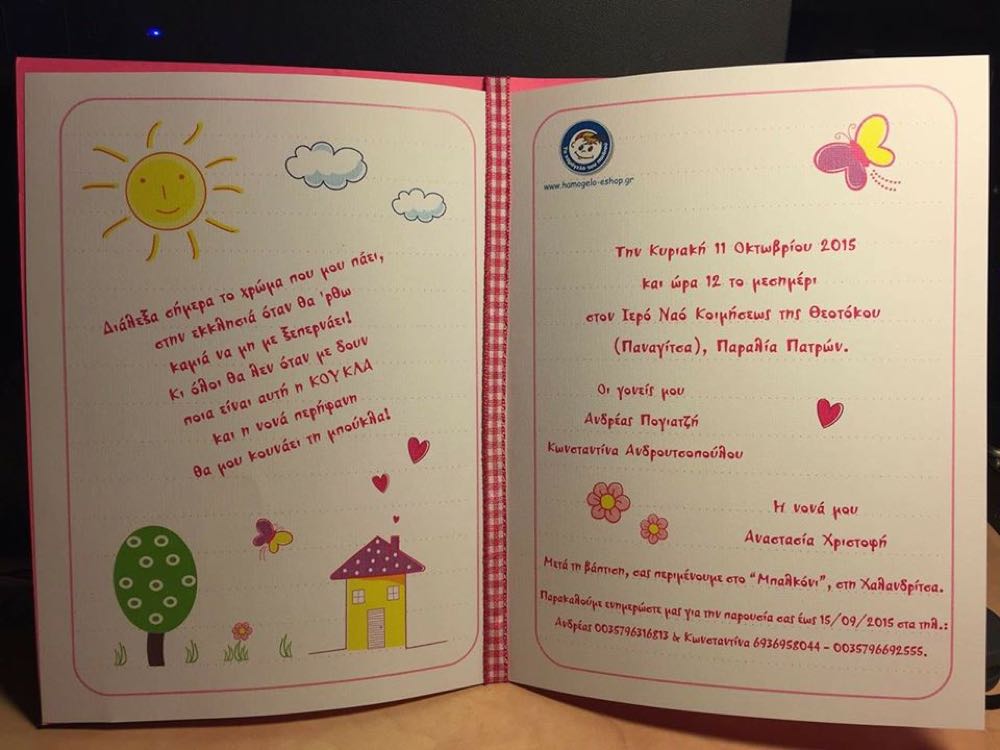 Διάλεξα σήμερα το χρώμα που μου πάει,
στην εκκλησιά όταν θα 'ρθω
καμιά να μη με ξεπερνάει!
Κι όλοι θα λεν όταν με δουν
ποια είναι αυτή η ΚΟΥΚΛΑ
και η νονά περήφανη
θα μου κουνάει τη μπούκλα!
Το χαμόγελο του παιδιού
www.hamogelo-eshop.gr
Την Κυριακή 11 Οκτωβρίου 2015
και ώρα 12 το μεσημέρι
στον Ιερό Ναό Κοιμήσεως της Θεοτόκου
(Παναγίτσα), Παραλία Πατρών.
Οι γονείς μου
Ανδρέας Πογιατζή
Κωνσταντίνα Ανδρουτσοπούλου
Η νονά μου
Αναστασία Χριστοφή
Μετά τη βάπτιση, σας περιμένουμε στο "Μπαλκόνι", στη Χαλανδρίτσα.
Παρακαλούμε ενημερώστε μας για την παρουσία σας έως 15/09/2015 στα τηλ.:
Ανδρέας 0035796316813 & Κωνσταντίνα 6936958044 - 0035796692555.